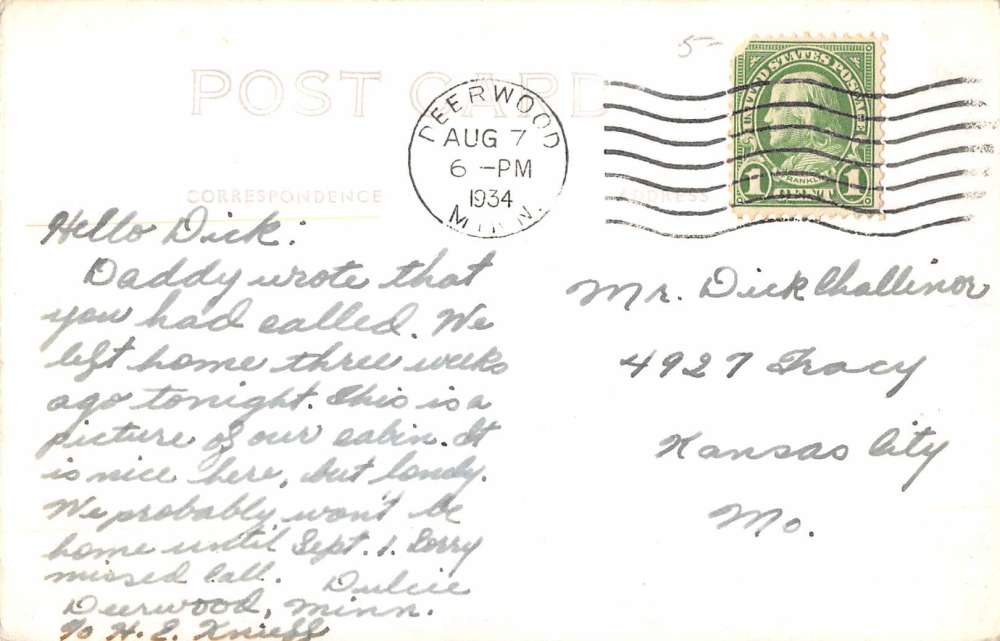 5-
POST CARD
DEERWOOD
AUG 7
6 -PM
1934
MINN.
UNITED STATES POSTAGE
FRANKLIN
1 CENT 1
CORRESPONDENCE
ADDRESS
Hello Dick:
Daddy wrote that
you had called. We
left home three weeks
ago tonight. This is a
picture of our cabin. It
is nice here, but lonely.
We probably won't be
home until Sept. 1. Sorry
missed call. Dulcie
Deerwood, Minn.
c/o H. E.
Mr. Dick Challinor
4927 Tracy
Kansas City
Mo.